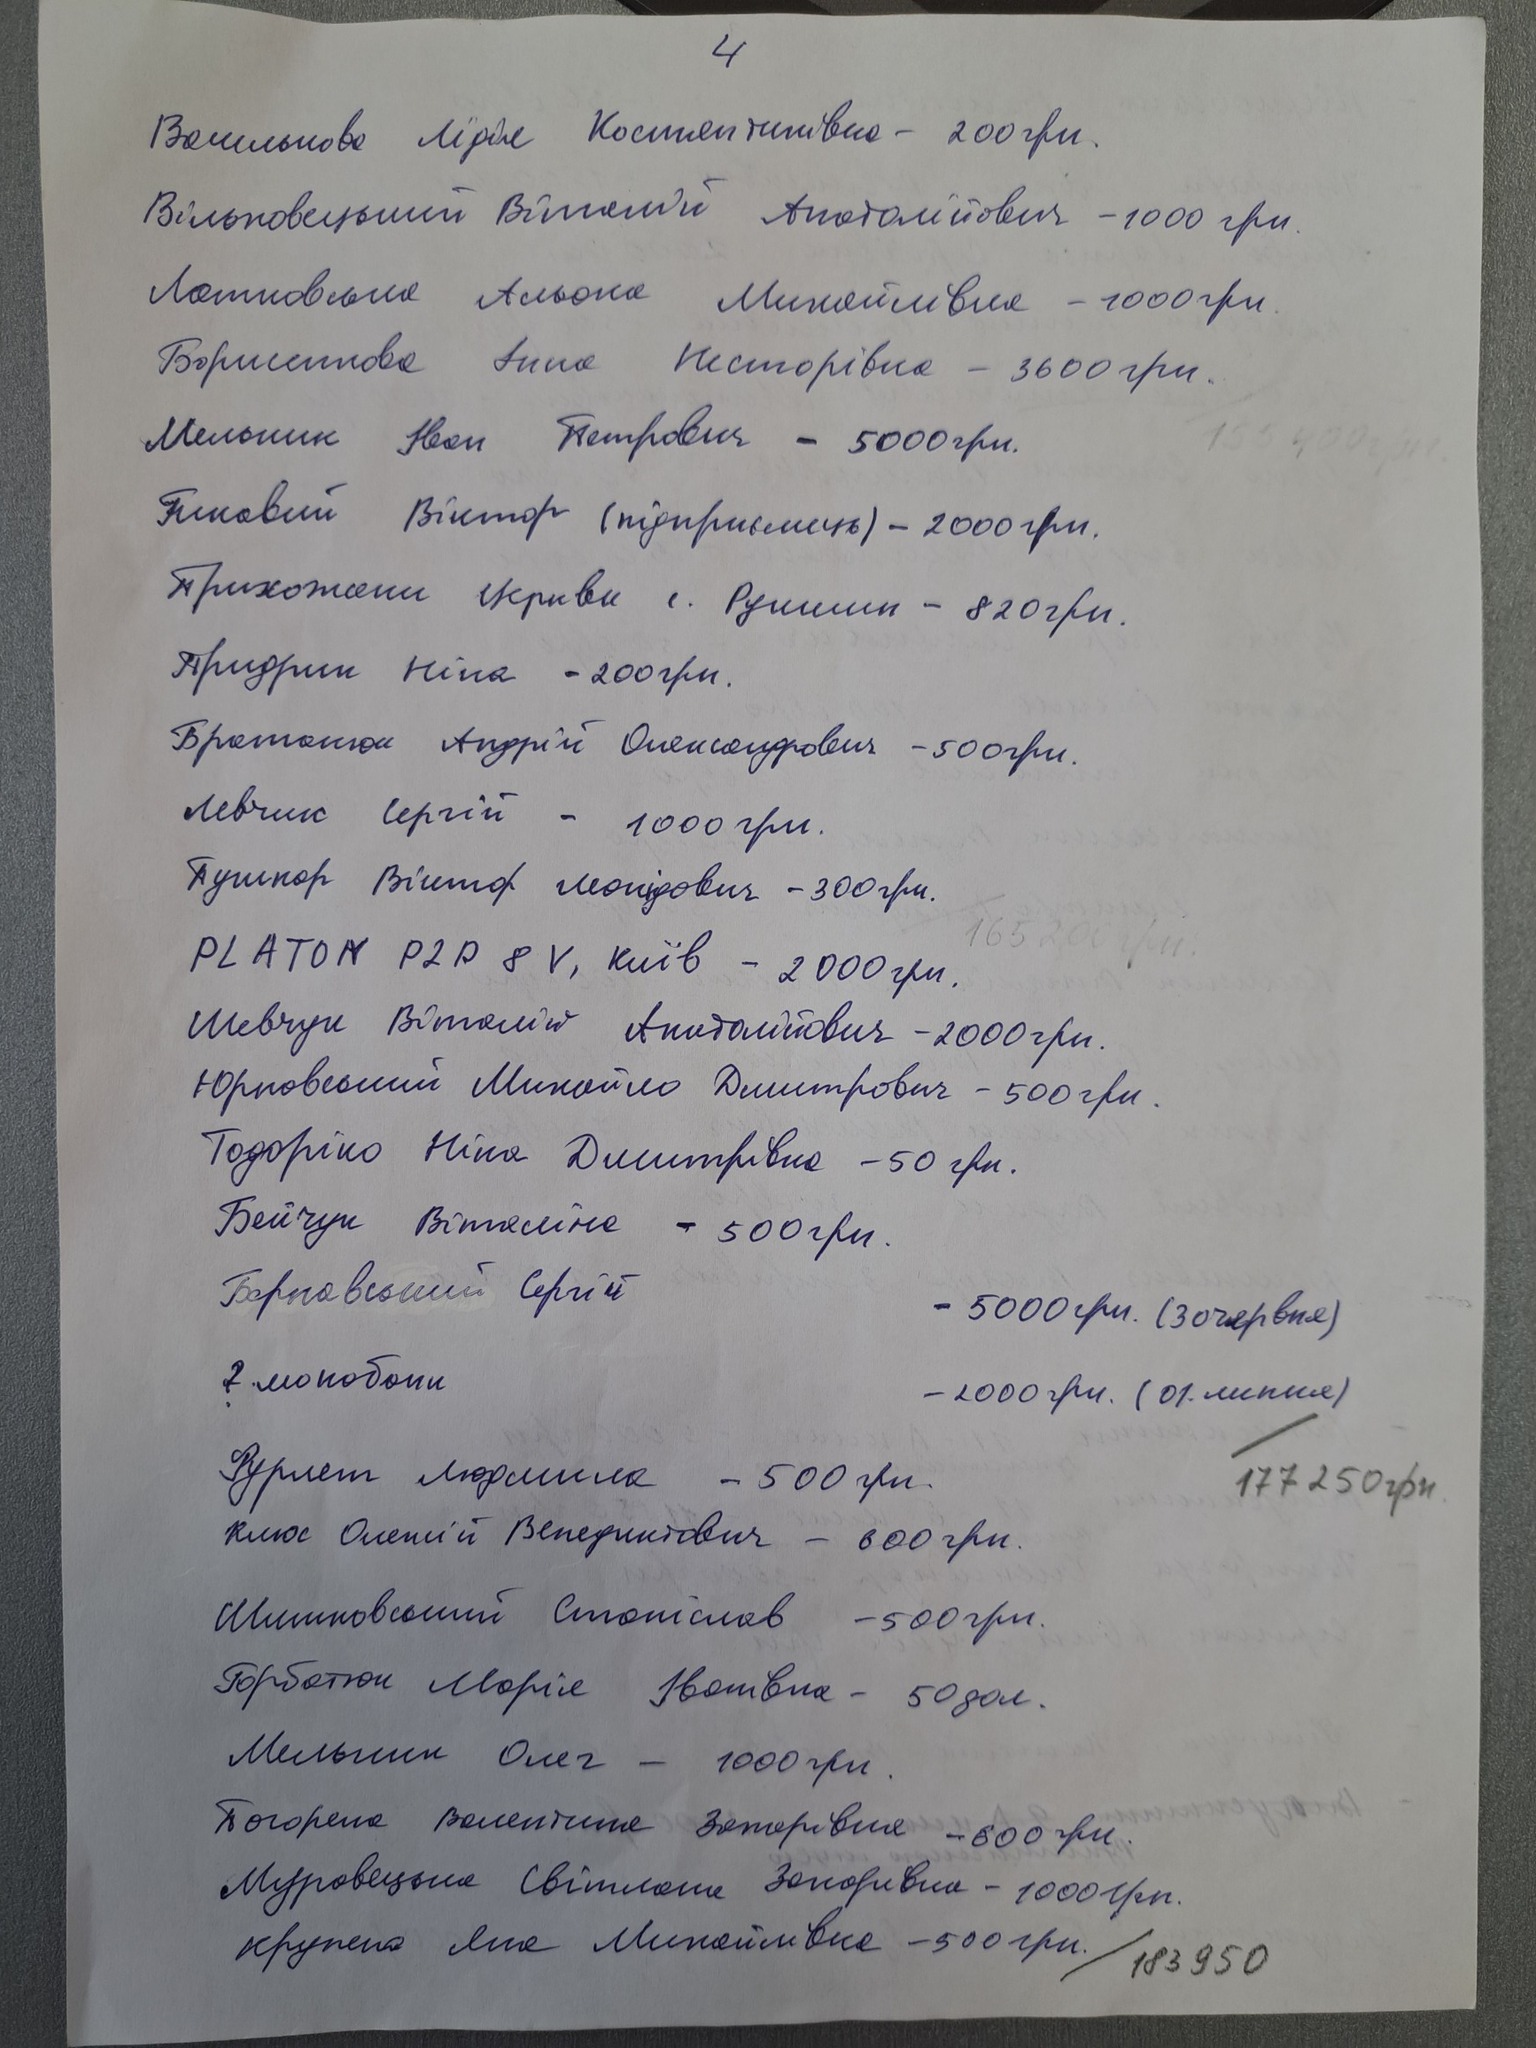 4
Василькова Лідія Костянтинівна - 200 грн.
Вільховецький Віталій Анатолійович - 1000 грн.
Лятковська Альона Михайлівна - 1000 грн.
Борисенкова Інна Несторівна - 3600 грн.
Мельник Іван Петрович - 5000 грн.
Гиковий Віктор (підприємець) - 2000 грн.
Прихожани церкви с. Рункши - 820 грн.
Придрик Ніна - 200 грн.
Братанюк Андрій Олександрович - 500 грн.
Левчик Сергій - 1000 грн.
Пушкар Віктор Леонідович - 300 грн.
PLATON P2P 8 V, Київ - 2000 грн.
Шевчук Віталій Анатолійович - 2000 грн.
Юрковський Михайло Дмитрович - 500 грн.
Тодоріко Ніна Дмитрівна - 50 грн.
Бейчук Віталіна - 500 грн.
Барнавський Сергій - 5000 грн. (30 червня)
? монобанк - 2000 грн. (01. липня)
177 250 грн
Рурлет Людмила - 500 грн.
Клюс Олексій Венедиктович - 600 грн.
Шишковський Станіслав - 500 грн.
Горбатюк Марія Іванівна - 50 дол.
Мельник Олег - 1000 грн.
Погоріла Валентина Захарівна - 600 грн.
Муровецька Світлана Захарівна - 1000 грн.
Крупена Яна Михайлівна - 500 грн. / 183 950